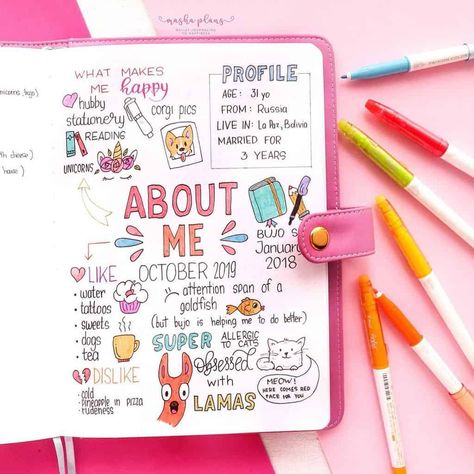 masha plans
BULLET JOURNALING
TO HAPPINESS
WHAT MAKES
ME happy
hubby
stationery
READING
UNICORNS
corgi pics
PROFILE
AGE: 31 yo
FROM: Russia
LIVE IN: La Paz, Bolivia
MARRIED FOR
3 YEARS
ABOUT
ME
OCTOBER 2019
BUJO S
January
2018
LIKE
• water
• tattoos
• sweets
• dogs
• tea
DISLIKE
• cold
• pineapple in pizza
• rudeness
attention span of a
goldfish
(but bujo is helping me to do better)
SUPER
Obsessed
with
LAMAS
ALLERGIC
TO CATS
MEOW!
HERE COMES RED
FACE FOR YOU